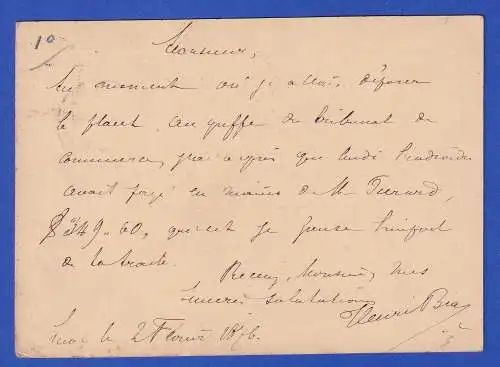 1º
Monsieur,
Au moment où je allais déposer
le placet au greffe du Tribunal de
commerce, j'ai appris que lundi
avait en mains de Mr
$ 349.60, qui est je pense
de la traite.
Recevez, Monsieur, mes
sincères salutations
Henri
le 2 Février 1876.